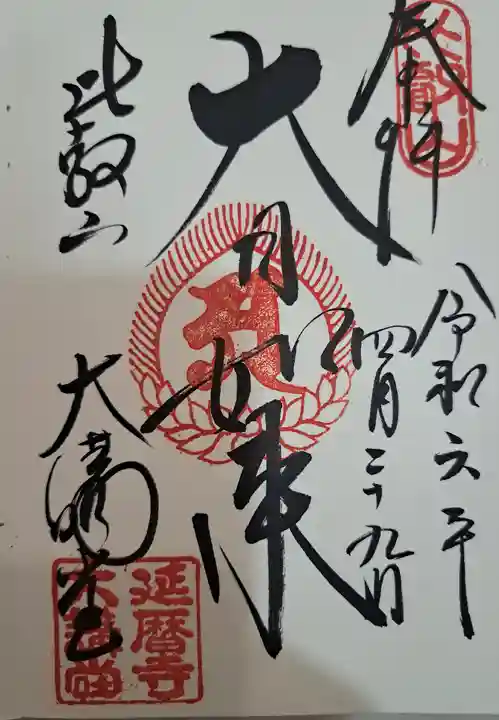 奉拝
比叡山
令和六年
四月二十九日
大日如来
比叡山
大講堂
延暦寺
大講堂